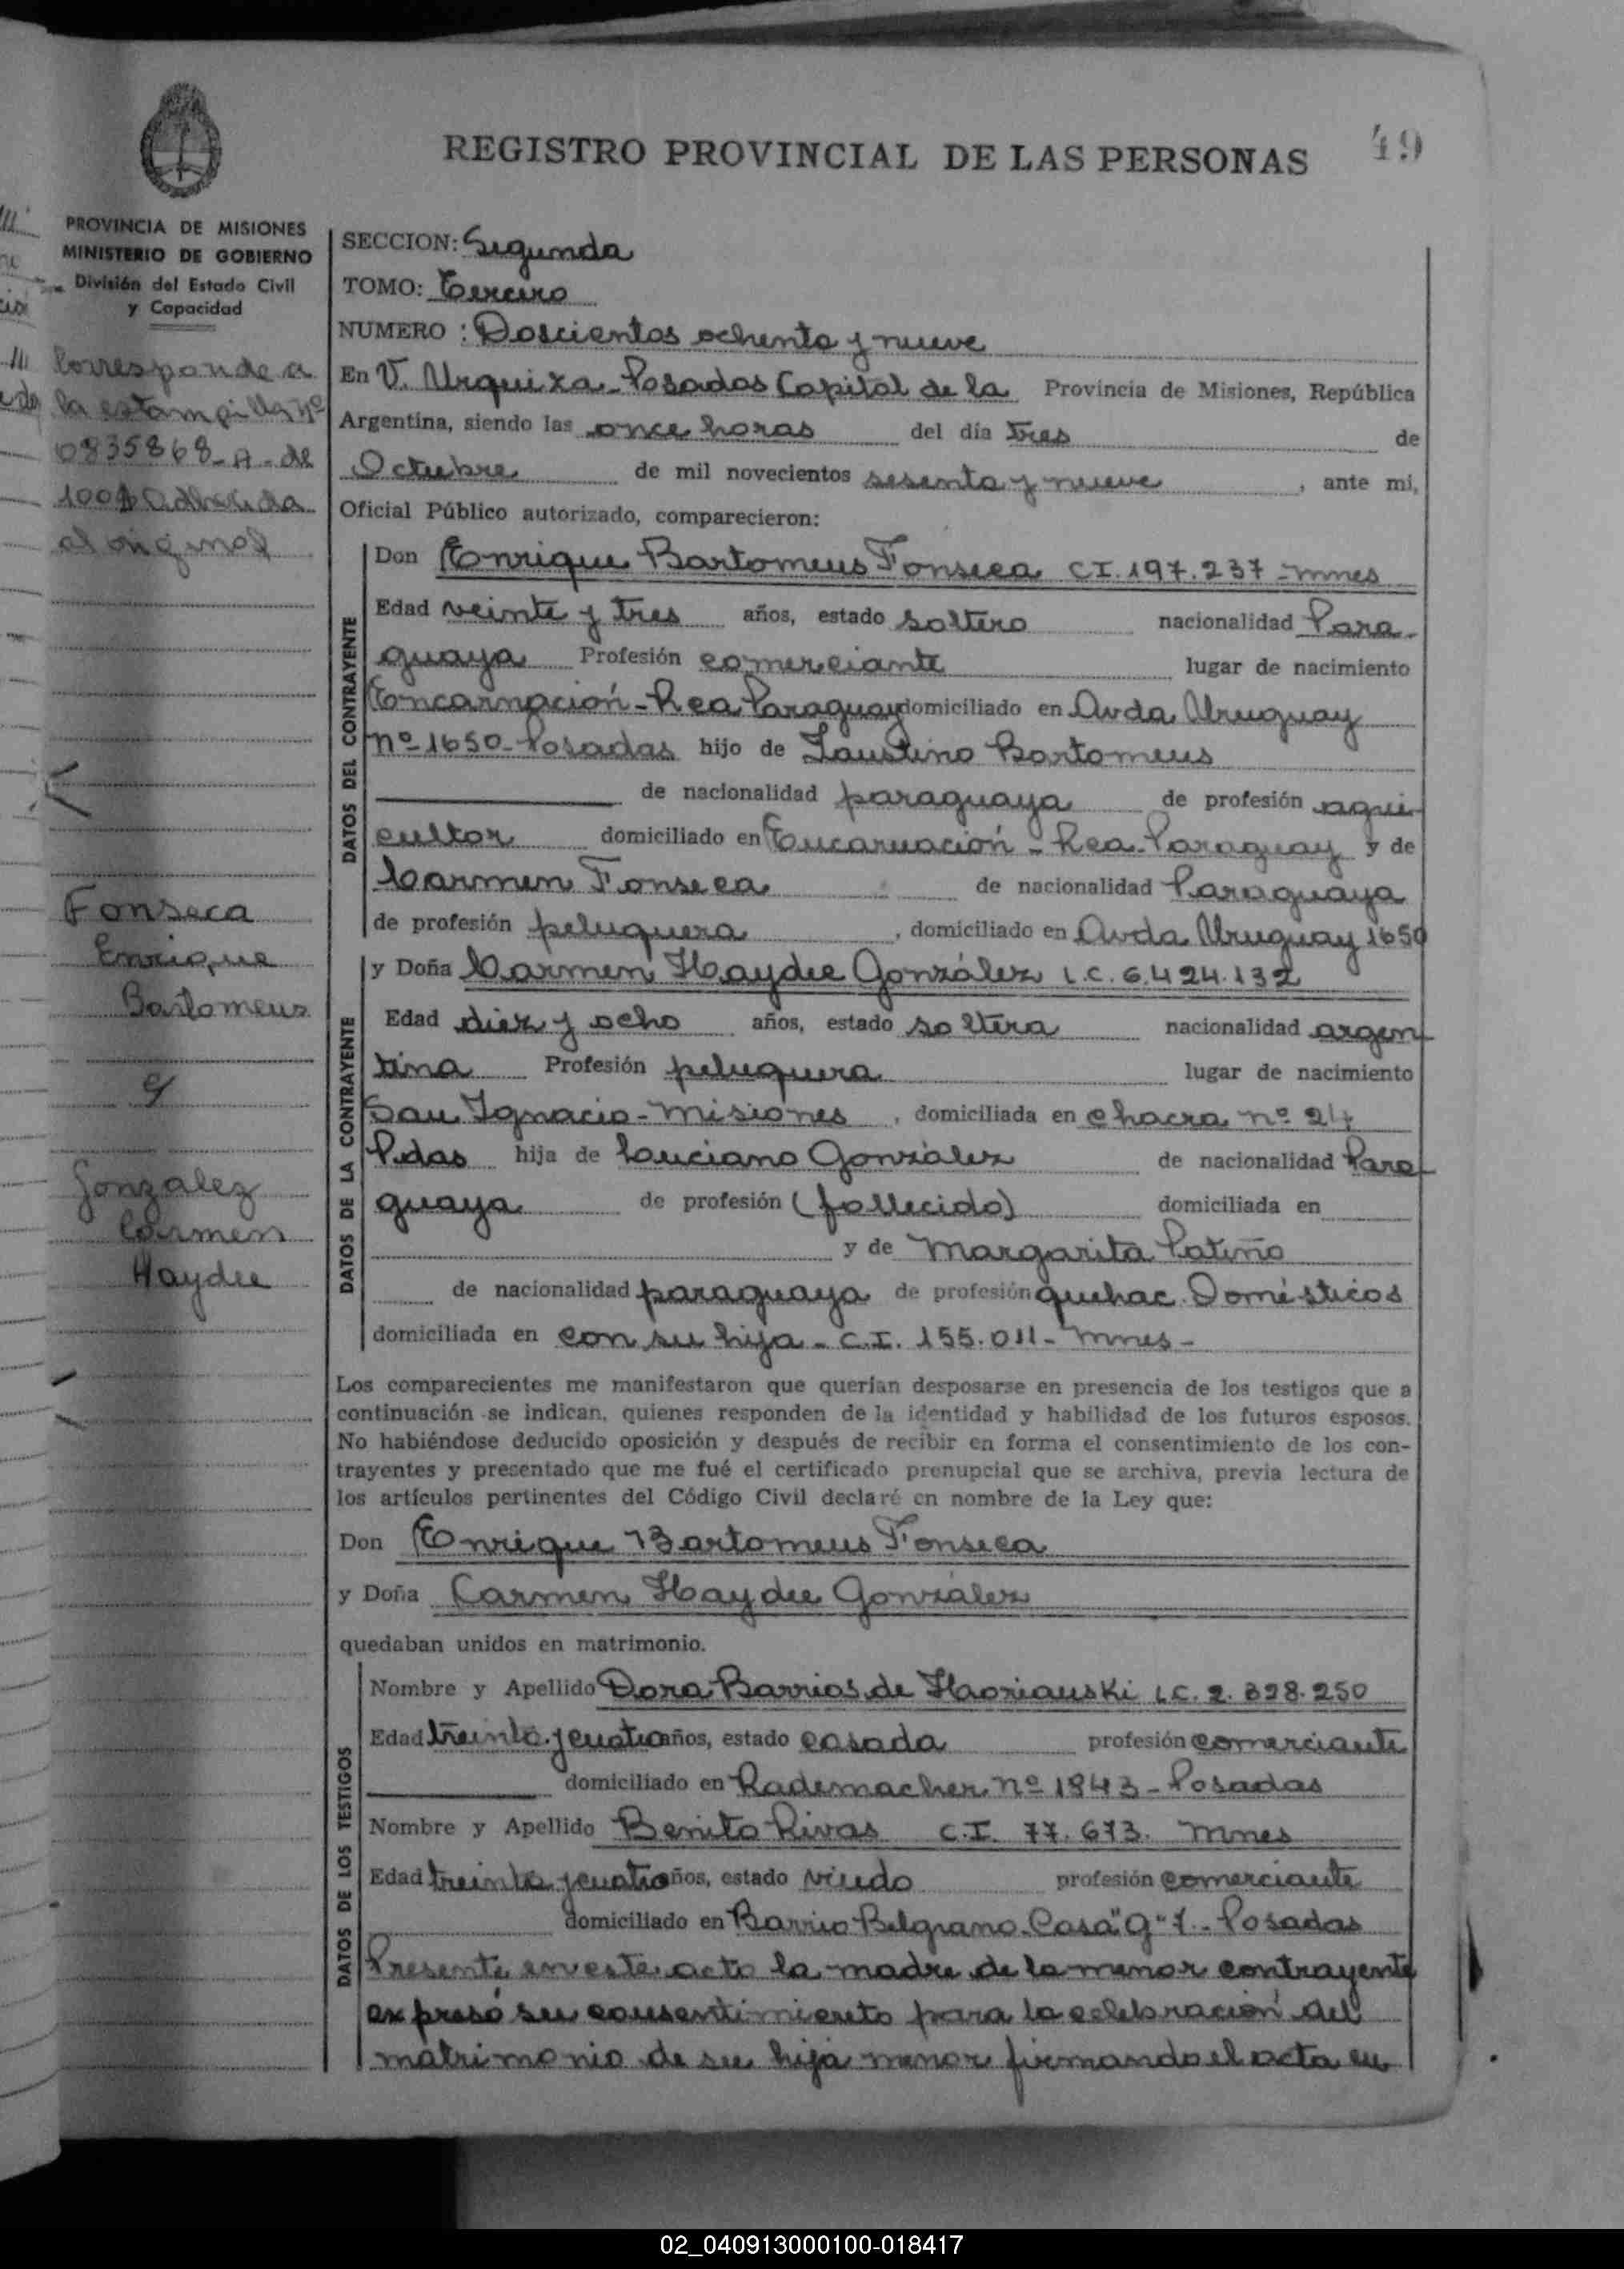 REGISTRO PROVINCIAL DE LAS PERSONAS
49
PROVINCIA DE MISIONES
MINISTERIO DE GOBIERNO
División del Estado Civil
y Capacidad
Corresponde a
la estampilla Nº
0835868-A-de
100$ adherida
al original
Fonseca
Enrique
Bartomeus
y
Gonzalez
Carmen
Haydee
SECCION: Segunda
TOMO: Tercero
NUMERO : Doscientos ochenta y nueve
En V. Urquiza - Posadas Capital de la Provincia de Misiones, República
Argentina, siendo las once horas del día tres de
Octubre de mil novecientos sesenta y nueve, ante mi,
Oficial Público autorizado, comparecieron:
DATOS DEL CONTRAYENTE
Don Enrique Bartomeus Fonseca CI. 197.237 - mnes
Edad veinte y tres años, estado soltero nacionalidad Para
guaya Profesión comerciante lugar de nacimiento
Encarnación - Rca Paraguay domiciliado en Avda Uruguay
nº 1650 - Posadas hijo de Faustino Bartomeus
de nacionalidad paraguaya de profesión agri
cultor domiciliado en Encarnación - Rca. Paraguay y de
Carmen Fonseca de nacionalidad Paraguaya
de profesión peluquera, domiciliado en Avda Uruguay 1650
DATOS DE LA CONTRAYENTE
y Doña Carmen Haydee González L.C. 6.424.132
Edad diez y ocho años, estado soltera nacionalidad argen
tina Profesión peluquera lugar de nacimiento
San Ignacio - Misiones, domiciliada en chacra nº 24
Pdas hija de Luciano González de nacionalidad Para
guaya de profesión (fallecido) domiciliada en
y de Margarita Patiño
de nacionalidad paraguaya de profesión quehac. Domésticos
domiciliada en con su hija - C.I. 155.011 - mnes -
Los comparecientes me manifestaron que querían desposarse en presencia de los testigos que a
continuación se indican, quienes responden de la identidad y habilidad de los futuros esposos.
No habiéndose deducido oposición y después de recibir en forma el consentimiento de los con-
trayentes y presentado que me fué el certificado prenupcial que se archiva, previa lectura de
los artículos pertinentes del Código Civil declaré en nombre de la Ley que:
Don Enrique Bartomeus Fonseca
y Doña Carmen Haydee González
quedaban unidos en matrimonio.
DATOS DE LOS TESTIGOS
Nombre y Apellido Dora Barrios de LC. 2.328.250
Edad treinta y cuatro años, estado casada profesión comerciante
domiciliado en Rademacher nº 1843 - Posadas
Nombre y Apellido Benito Rivas C.I. 77.673. mnes
Edad treinta y cuatro años, estado viudo profesión comerciante
domiciliado en Barrio Belgrano Casa "G" 1 - Posadas
Presente en este acto la madre de la menor contrayente
expresó su consentimiento para la celebración del
matrimonio de su hija menor firmando el acta en
02_040913000100-018417